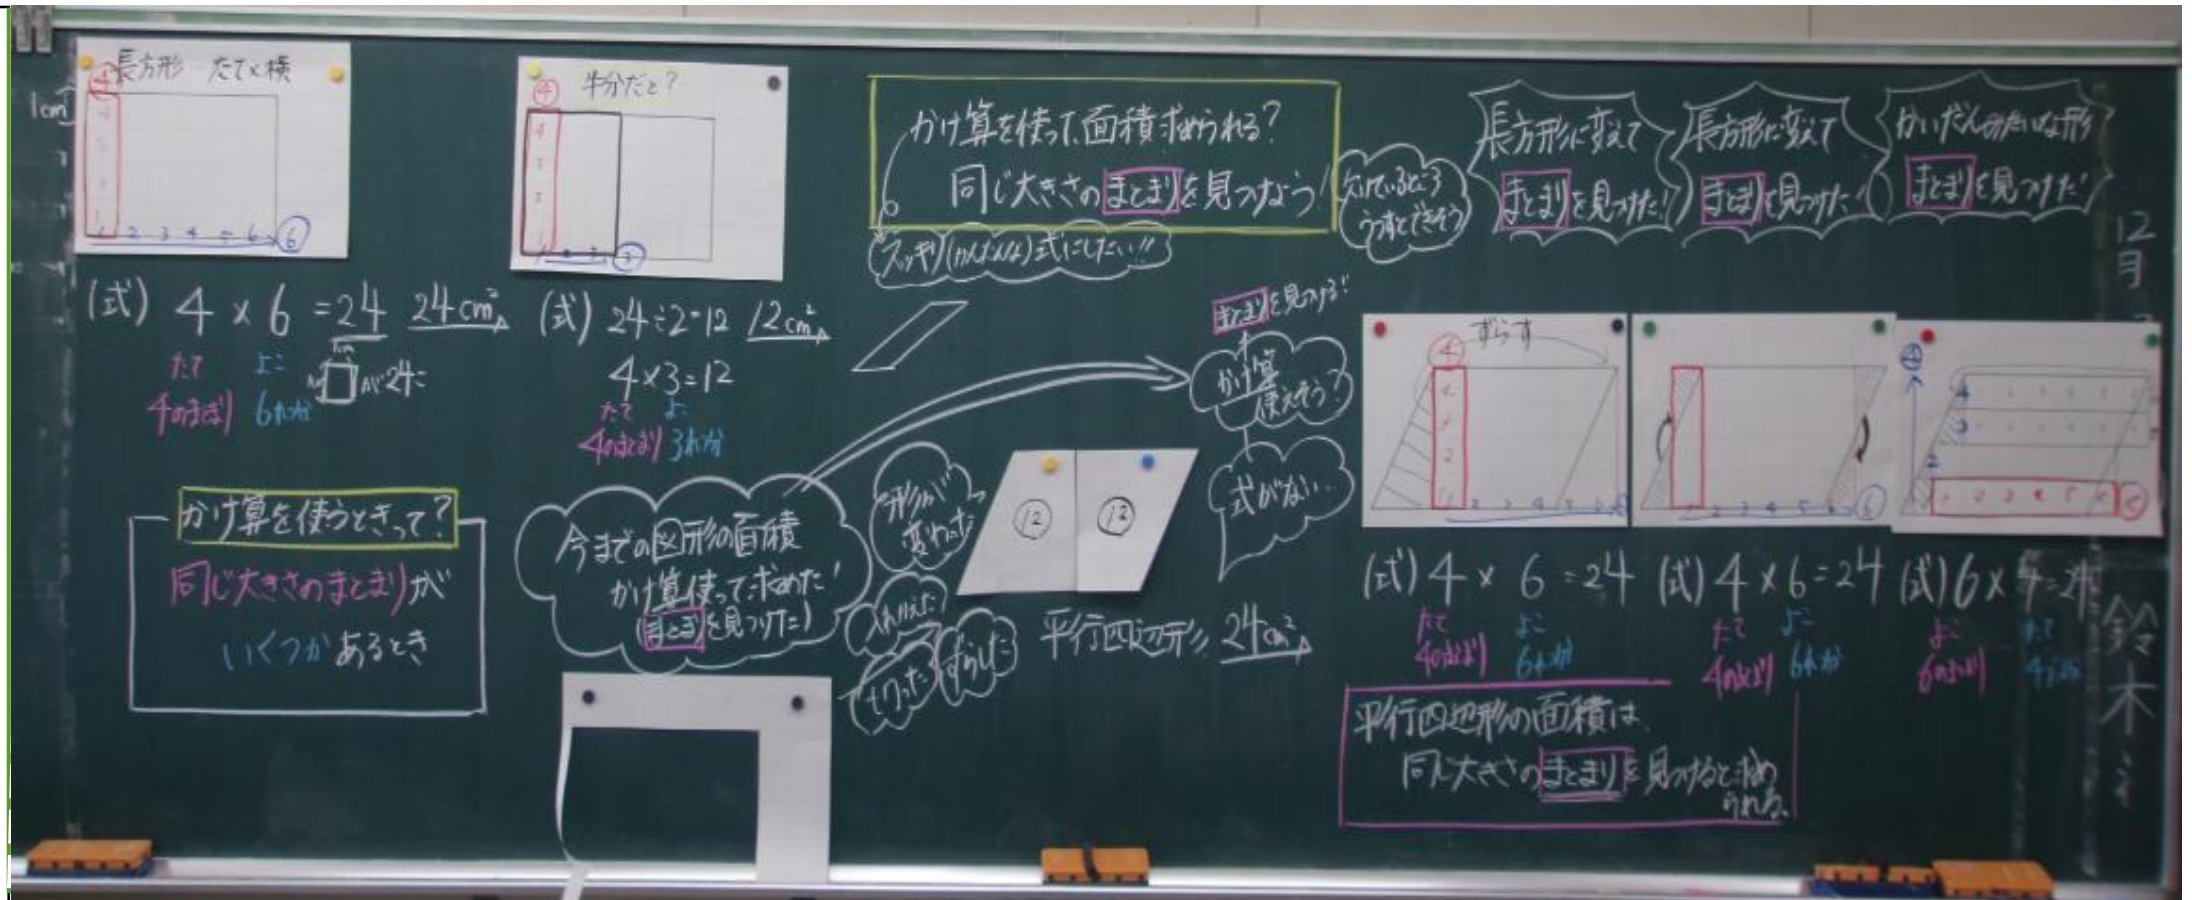 長方形 たて×横
④
4
3
2
1 2 3 4 5 6 ⑥
1cm
(式) 4 × 6 = 24 24cm²
たて よこ
4のまとまり 6れつ分
が24こ
かけ算を使うときって?
同じ大きさのまとまりが
いくつかあるとき
半分だと?
④
4
3
2
1 2 3 ③
(式) 24÷2=12 12cm²
4×3=12
たて よこ
4のまとまり 3れつ分
今までの図形の面積
かけ算使って求めた!
(まとまりを見つけた)
かけ算を使って、面積求められる?
同じ大きさのまとまりを見つけよう!
スッキリ(かんたんな)式にしたい!!
形が
変わった
入れかえた
切った
ずらした
⑫ ⑫
平行四辺形 24cm²
まとまりを見つける!
かけ算
使えそう?
式がない…
欠けているところ
うつすとできそう
長方形に変えて
まとまりを見つけた!
長方形に変えて
まとまりを見つけた!
かいだんみたいな形
まとまりを見つけた!
④ ずらす
4
3
2
1 2 3 4 5 6
1 2 3 4 5 6 ⑥
④
4
3
2
1 2 3 4 5 6 ⑥
(式) 4 × 6 = 24
たて よこ
4のまとまり 6れつ分
(式) 4 × 6 = 24
たて よこ
4のまとまり 6れつ分
(式) 6 × 4 = 24
よこ たて
6のまとまり
平行四辺形の面積は、
同じ大きさのまとまりを見つけると求め
られる。
12
月
鈴
木